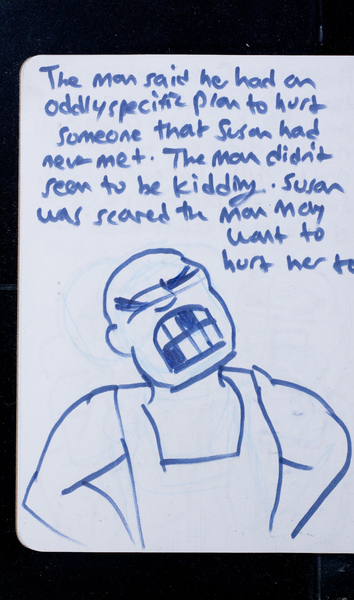 The man said he had an
oddly specific plan to hurt
someone that Susan had
never met. The man didn't
seem to be kidding. Susan
was scared the man may
want to
hurt her to